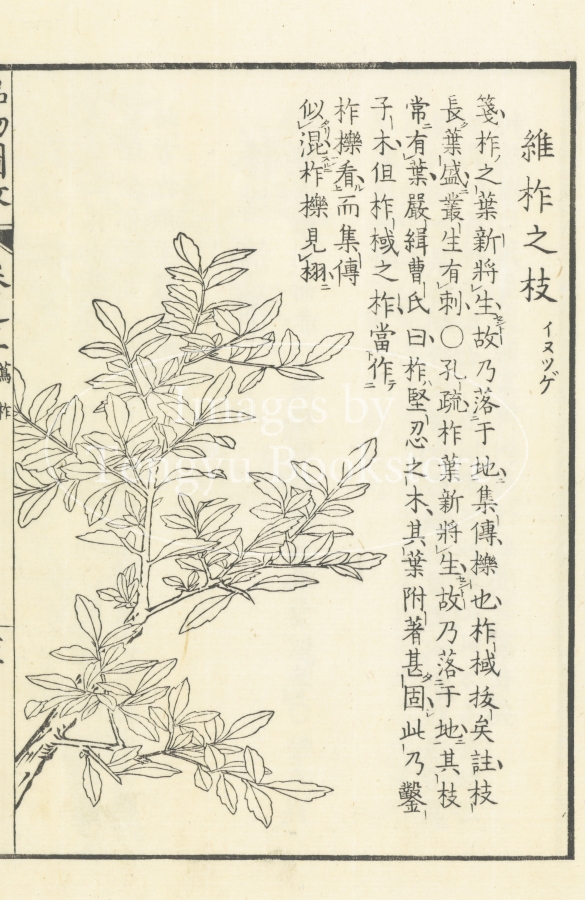 維柞之枝 イヌツゲ
箋柞之葉新將生故乃落于地集傳櫟也柞棫拔矣註枝
長葉盛叢生有刺〇孔疏柞葉新將生故乃落于地其枝
常有葉嚴緝曹氏曰柞堅忍之木其葉附著甚固此乃鑿
子木但柞棫之柞當作
柞櫟看而集傳
似混柞櫟見栩
Images by
Tengyu Bookstore